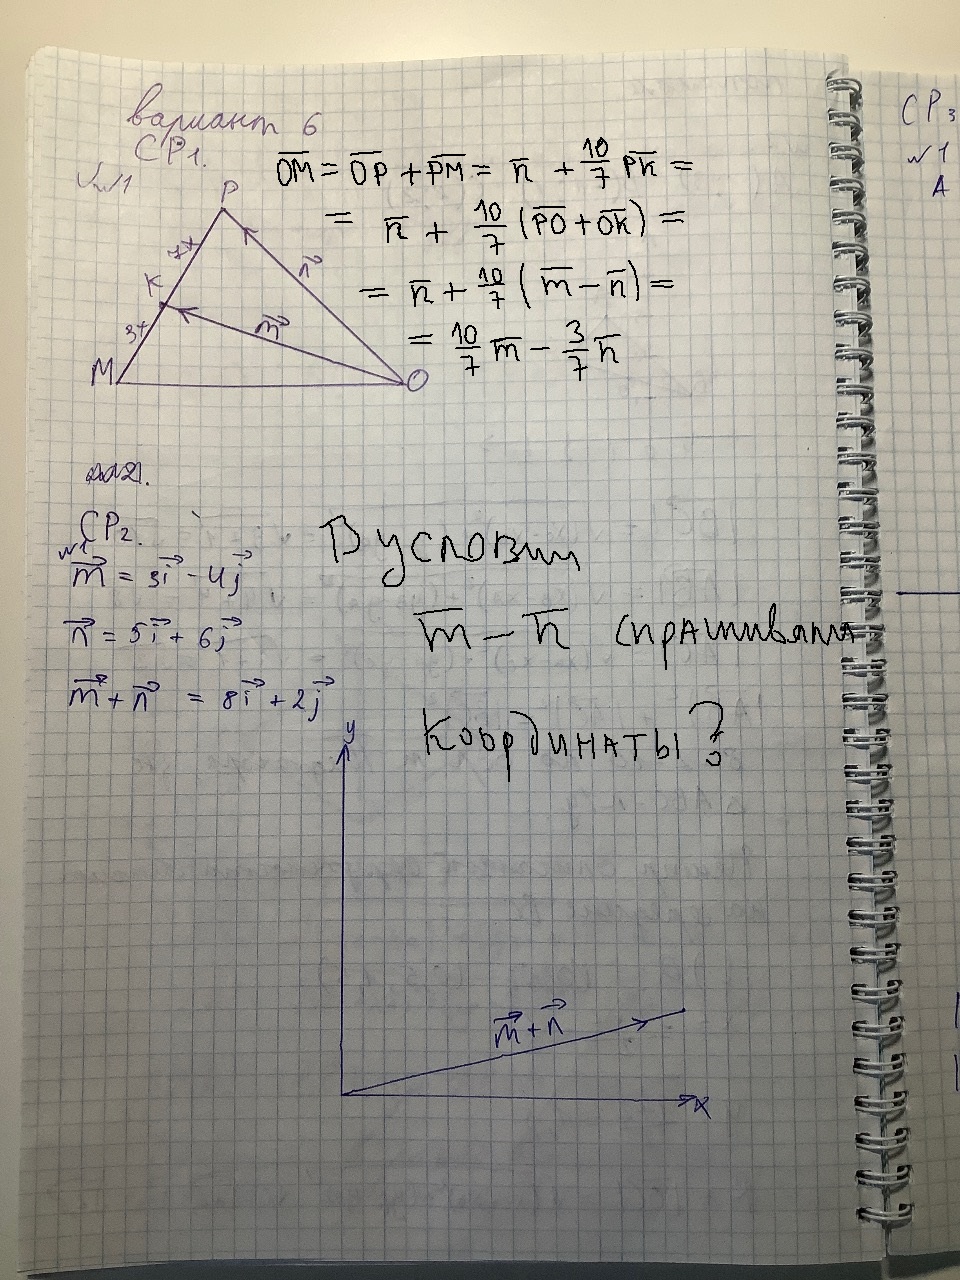 вариант 6
СР1.
№1
OM = OP + PM = n + 10/7 PK =
= n + 10/7 (PO + OK) =
= n + 10/7 (m − n) =
= 10/7 m − 3/7 n
P
7x
K
3x
M
O
n
m
№2.
СР2.
№1
m = 3i − 4j
n = 5i + 6j
m + n = 8i + 2j
В условии
m − n спрашивали
координаты?
y
m + n
x
СР3
№1
A